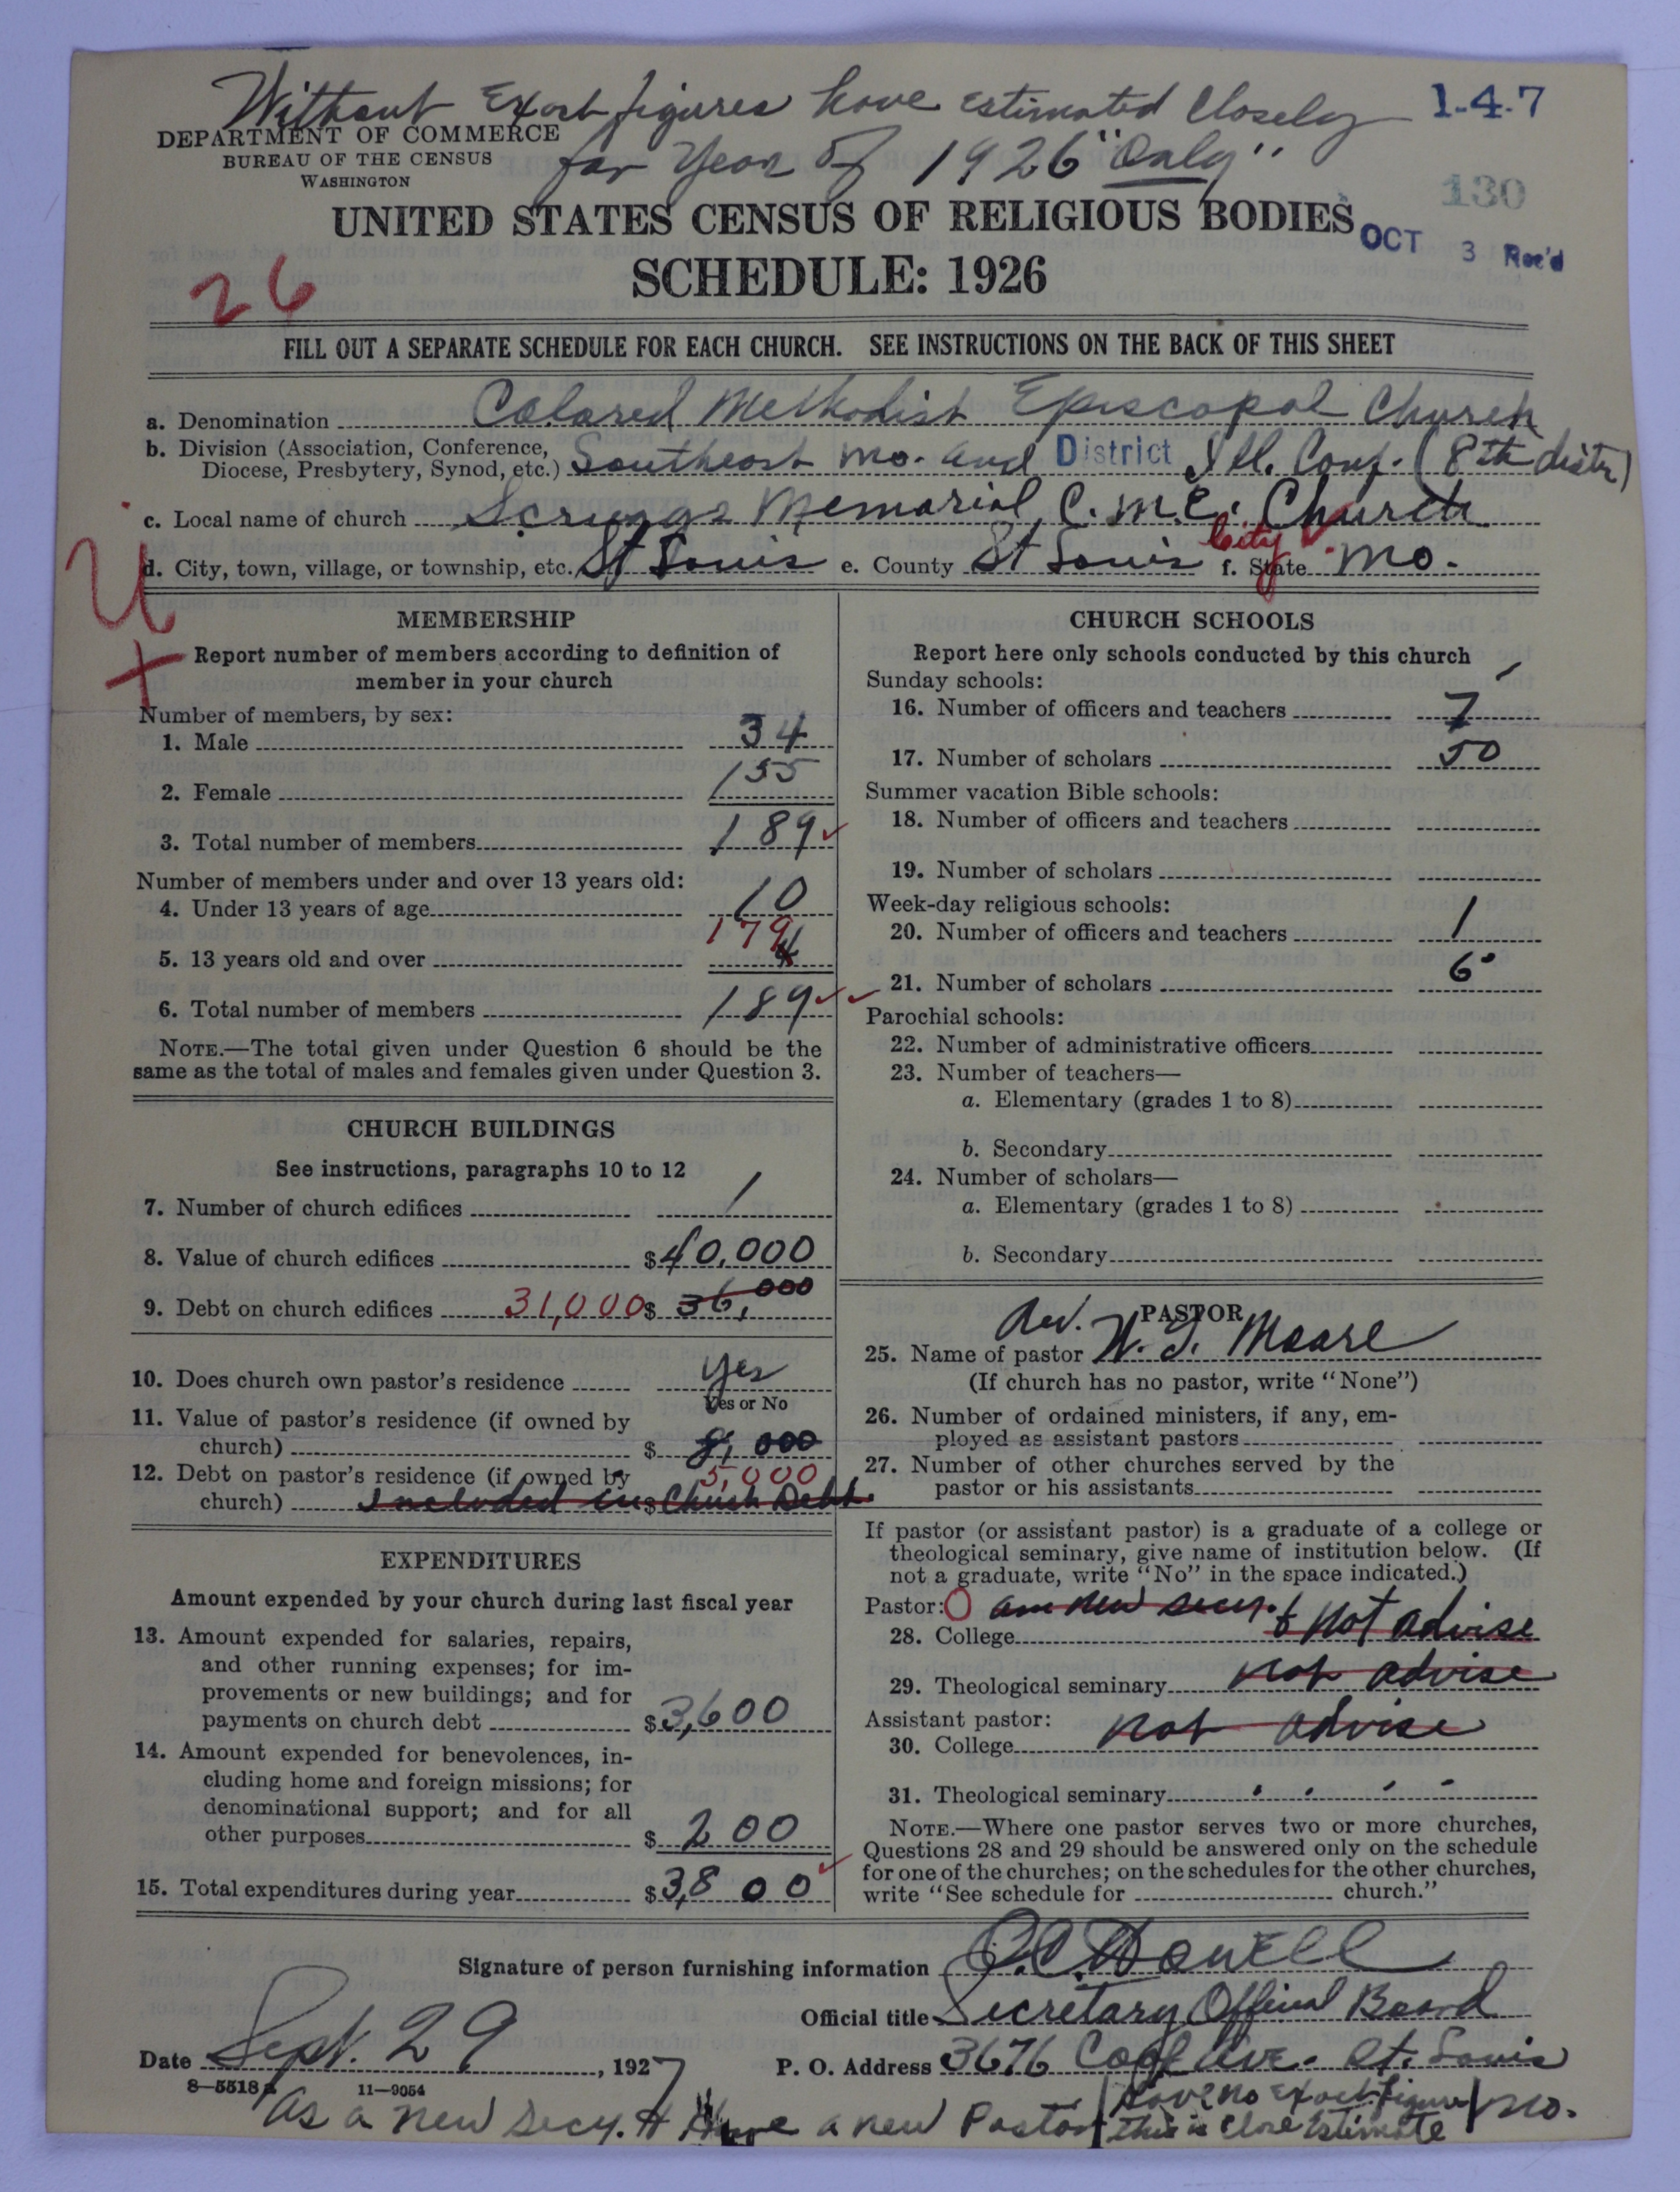 Without Exact figures have estimated Closely
for Year of 1926 "Only"
1-4-7
DEPARTMENT OF COMMERCE
BUREAU OF THE CENSUS
WASHINGTON
130
UNITED STATES CENSUS OF RELIGIOUS BODIES
OCT 3 Rec'd
SCHEDULE: 1926
26
FILL OUT A SEPARATE SCHEDULE FOR EACH CHURCH. SEE INSTRUCTIONS ON THE BACK OF THIS SHEET
a. Denomination Colored Methodist Episcopal Church
b. Division (Association, Conference, Diocese, Presbytery, Synod, etc.) Southeast Mo. and District Ill. Conf. (8th distr)
c. Local name of church Scruggs Memorial C.M.E. Church
d. City, town, village, or township, etc. St Louis e. County St Louis City f. State Mo.
MEMBERSHIP
Report number of members according to definition of
member in your church
Number of members, by sex:
1. Male 34
2. Female 155
3. Total number of members 189
Number of members under and over 13 years old:
4. Under 13 years of age 10
5. 13 years old and over 179
6. Total number of members 189
NOTE.—The total given under Question 6 should be the
same as the total of males and females given under Question 3.
CHURCH BUILDINGS
See instructions, paragraphs 10 to 12
7. Number of church edifices 1
8. Value of church edifices $40,000
9. Debt on church edifices 31,000 $ 36,000
10. Does church own pastor's residence yes
Yes or No
11. Value of pastor's residence (if owned by
church) $ 8,000
12. Debt on pastor's residence (if owned by 5,000
church) Included in $ Church Debt
EXPENDITURES
Amount expended by your church during last fiscal year
13. Amount expended for salaries, repairs,
and other running expenses; for im-
provements or new buildings; and for
payments on church debt $3,600
14. Amount expended for benevolences, in-
cluding home and foreign missions; for
denominational support; and for all
other purposes $ 200
15. Total expenditures during year $3,800
CHURCH SCHOOLS
Report here only schools conducted by this church
Sunday schools:
16. Number of officers and teachers 7
17. Number of scholars 50
Summer vacation Bible schools:
18. Number of officers and teachers
19. Number of scholars
Week-day religious schools:
20. Number of officers and teachers 1
21. Number of scholars 6
Parochial schools:
22. Number of administrative officers
23. Number of teachers—
a. Elementary (grades 1 to 8)
b. Secondary
24. Number of scholars—
a. Elementary (grades 1 to 8)
b. Secondary
PASTOR
25. Name of pastor Rev. W. G. Moore
(If church has no pastor, write "None")
26. Number of ordained ministers, if any, em-
ployed as assistant pastors
27. Number of other churches served by the
pastor or his assistants
If pastor (or assistant pastor) is a graduate of a college or
theological seminary, give name of institution below. (If
not a graduate, write "No" in the space indicated.)
Pastor: am new secy. &
28. College not advise
29. Theological seminary not advise
Assistant pastor:
30. College not advise
31. Theological seminary
NOTE.—Where one pastor serves two or more churches,
Questions 28 and 29 should be answered only on the schedule
for one of the churches; on the schedules for the other churches,
write "See schedule for church."
Signature of person furnishing information Howell
Official title Secretary Official Board
Date Sept. 29, 1927 P. O. Address 3676 Ave. St. Louis Mo.
8—5518a 11—9054
As a new Secy. & Have a new Pastor Have no Exact figures
this is Close Estimate